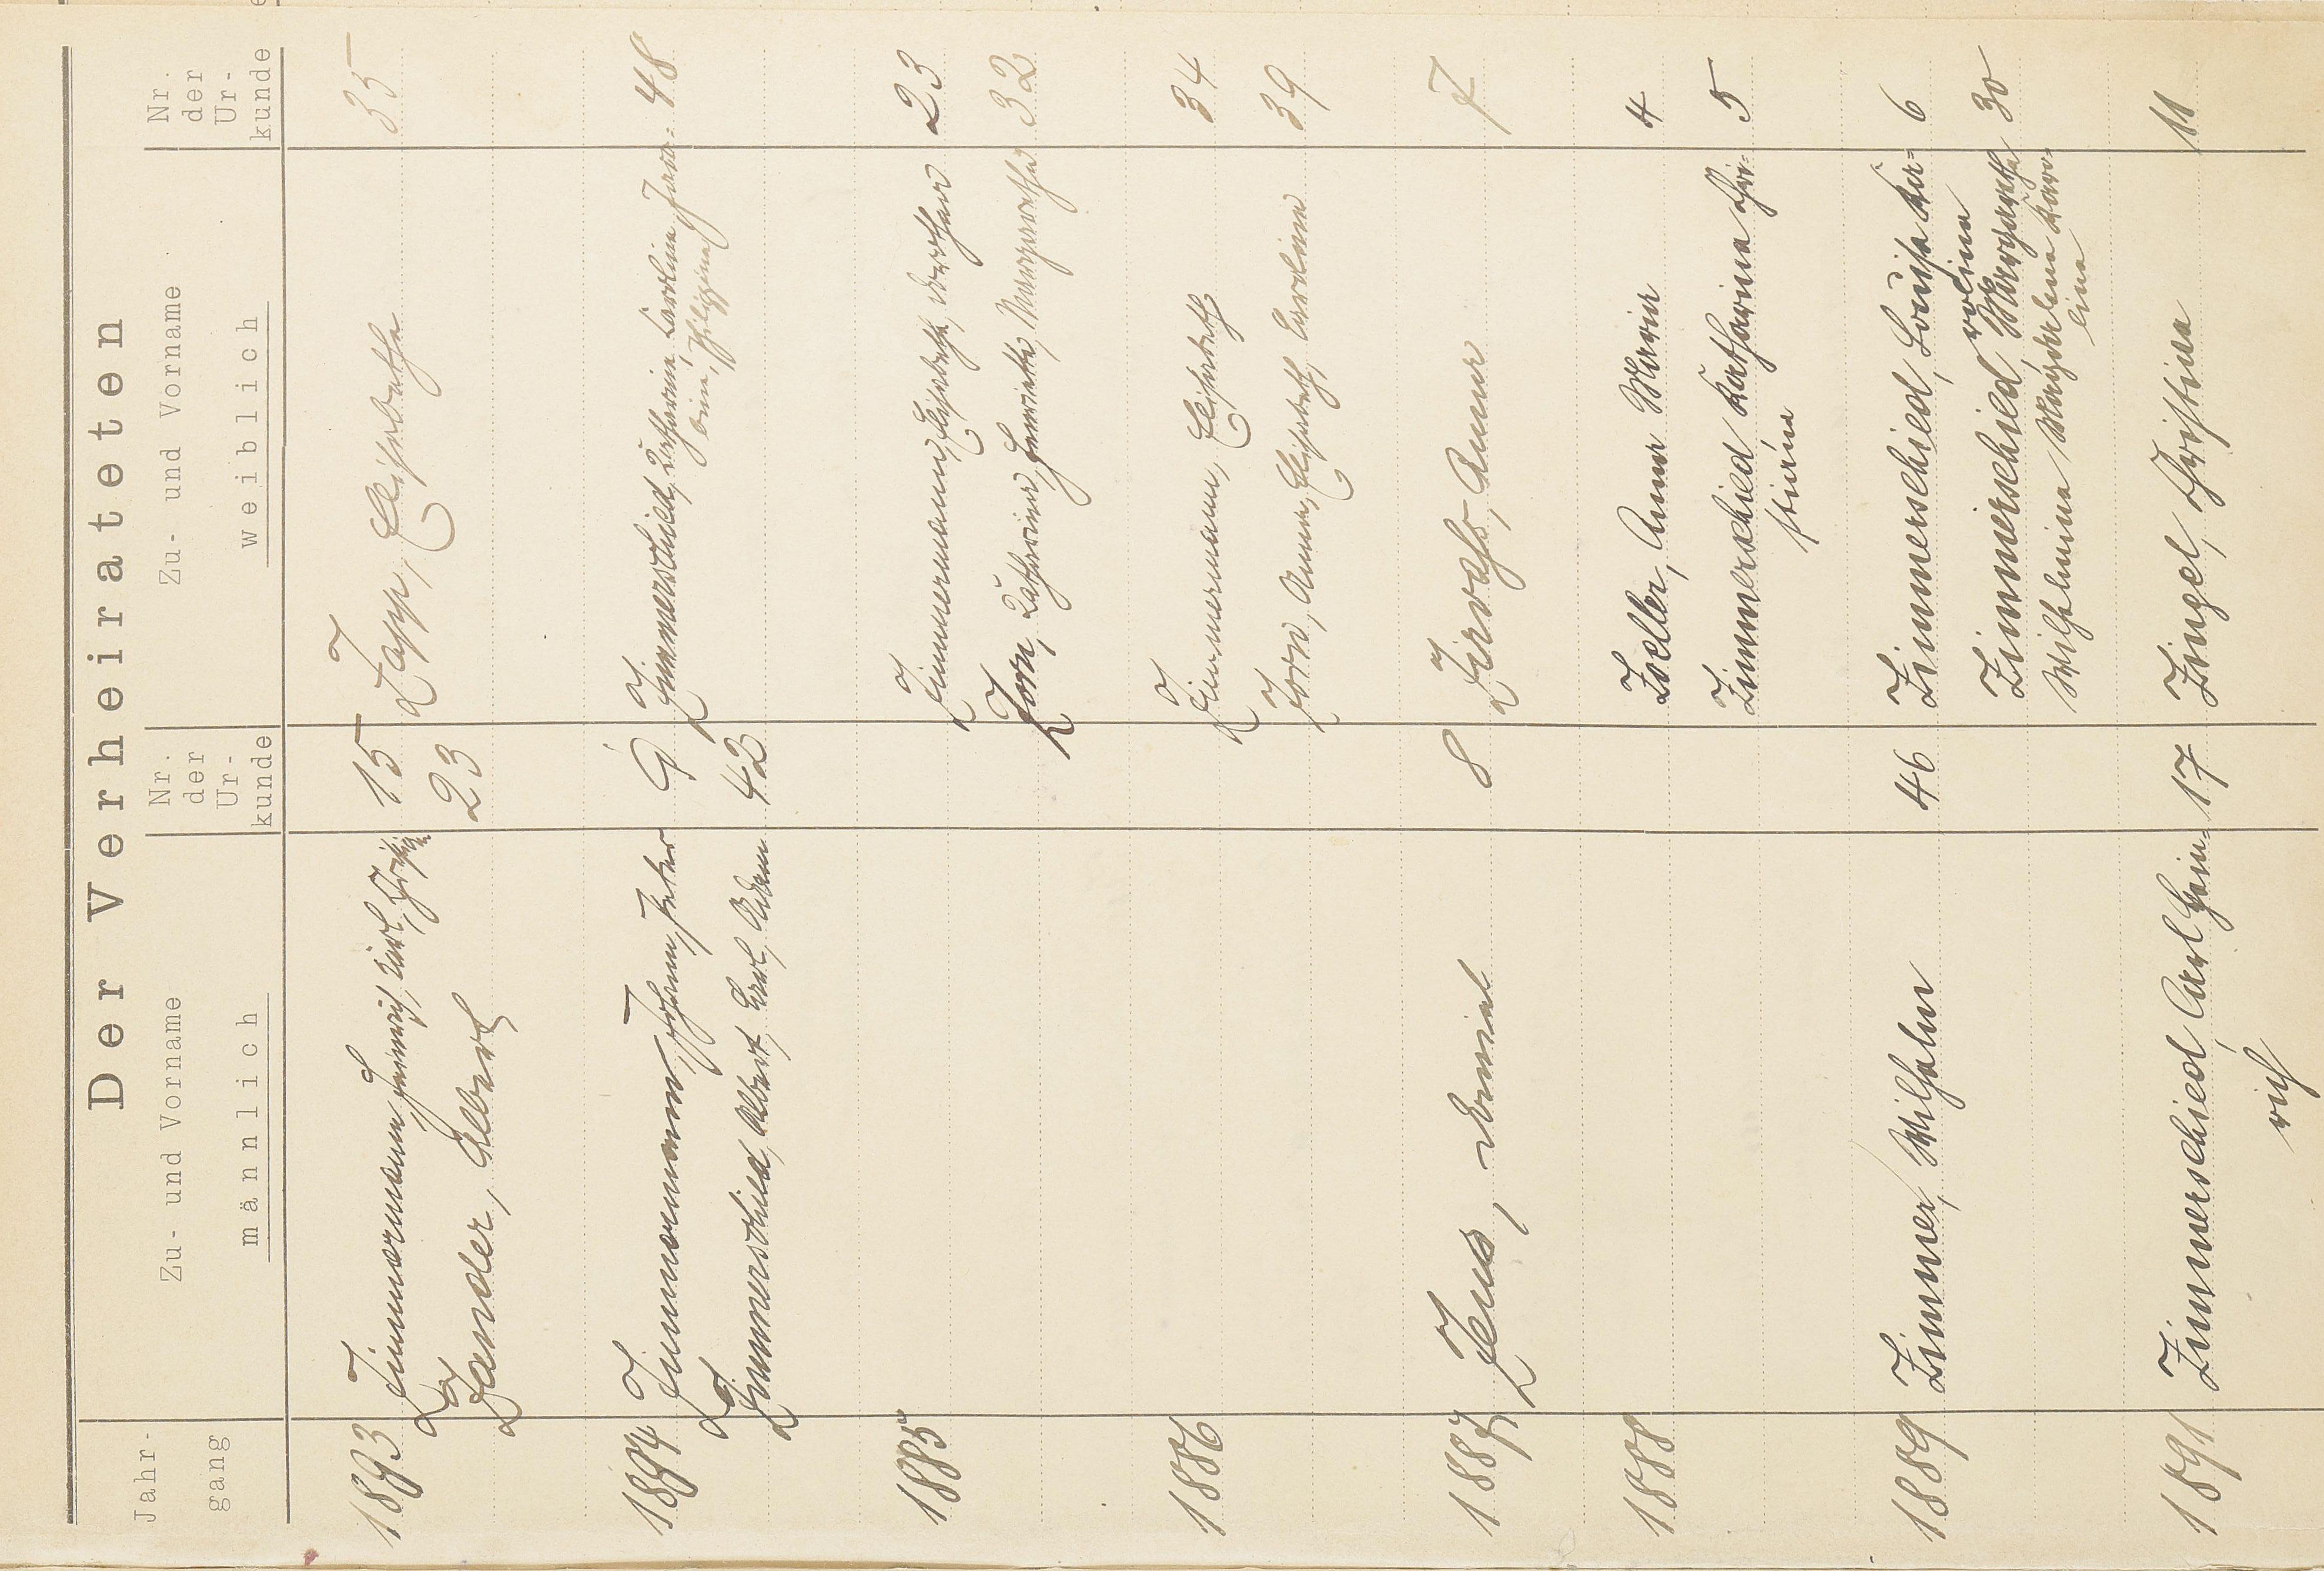 Der Verheirateten
Jahr-
gang
Zu- und Vorname
männlich
Nr.
der
Ur-
kunde
Zu- und Vorname
weiblich
Nr.
der
Ur-
kunde
1893 Zimmermann Heinrich, Karl, 15 Zapp, Elisabetha 35
Zander, Albert 23
1894 Zimmermann, Johann, Peter 9 Zimmerschied, Katharina, Karolina, Jaco= 48
bina, Philippina
Zimmerschied, Albert, Karl, Adam 42
1885 Zimmermann, Elisabetha, Dorothea 23
Zorn, Katharina, Henriette, Margaretha 32
1886 Zimmermann, Elisabeth 34
Zorn, Anna, Elisabeth, Carolina 39
1887 Zeus, Daniel 8 Anna 7
1888 Zoeller, Anna Maria 4
Zimmerschied Katharina Chri= 5
stina
1889 Zimmer, Wilhelm 46 Zimmerschied, Louisa Ka= 6
rolina
Zimmerschied, Margaretha 30
Wilhelmina Magdalena Karo=
lina
1891 Zimmerschied, Carl Hein= 17 Zingel, Christina 11
rich